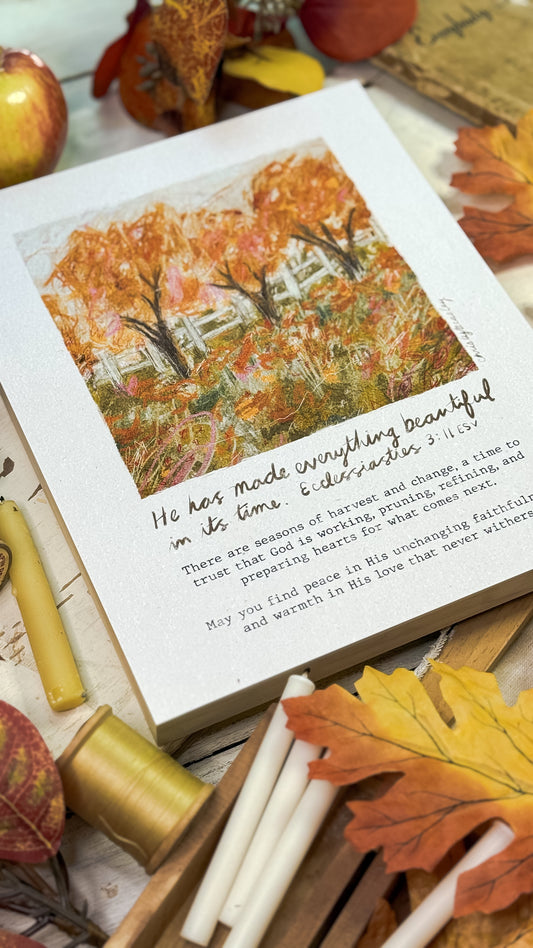 Everybody.
He has made everything beautiful
in its time. Ecclesiasties 3:11 ESV
There are seasons of harvest and change, a time to
trust that God is working, pruning, refining, and
preparing hearts for what comes next.
May you find peace in His unchanging faithfuln
and warmth in His love that never withers